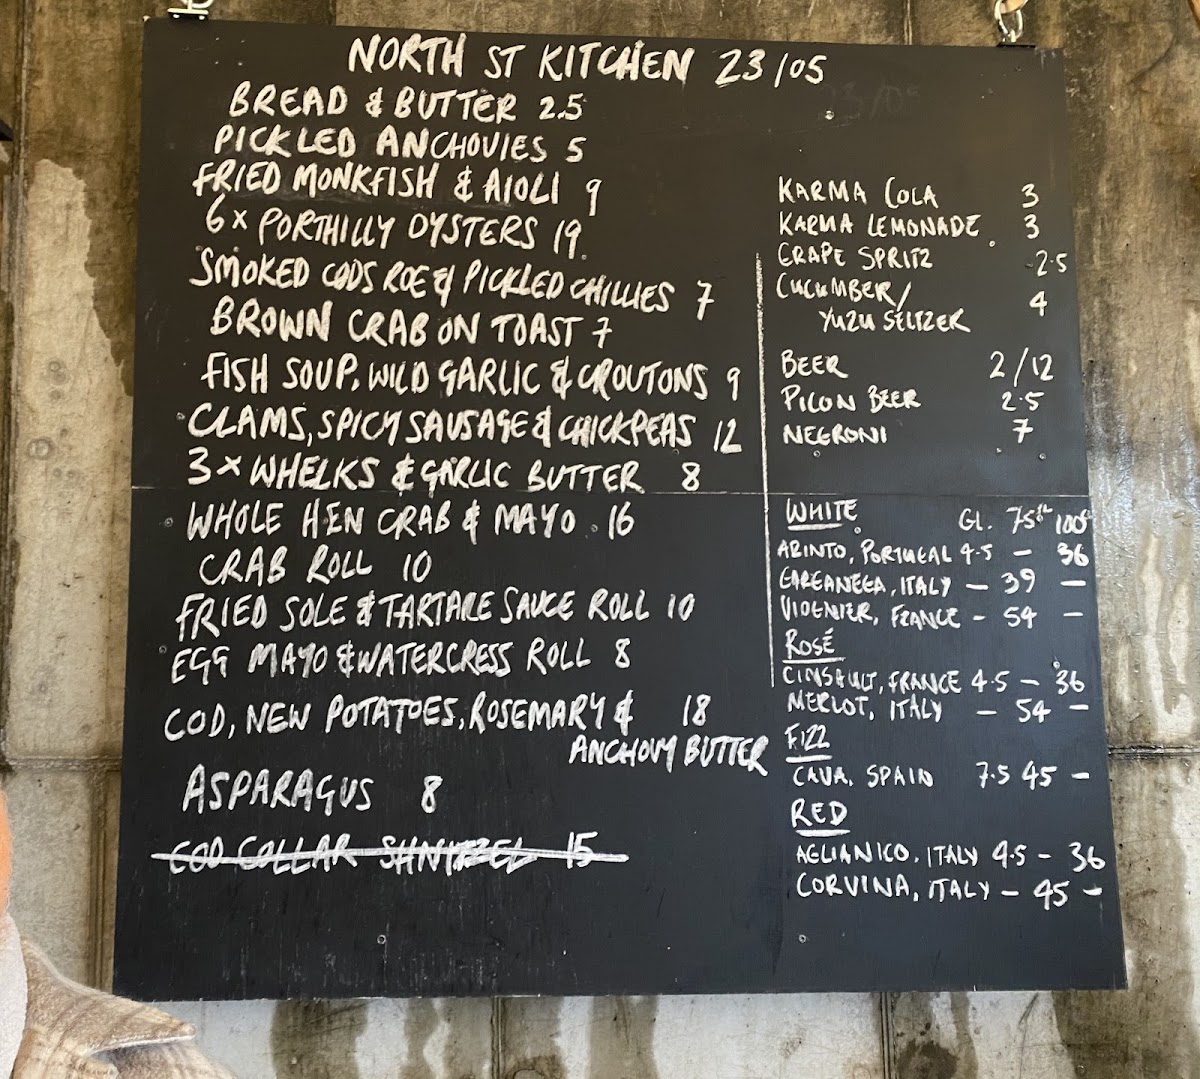 NORTH ST KITCHEN 23/05
BREAD & BUTTER 2.5
PICKLED ANCHOVIES 5
FRIED MONKFISH & AIOLI 9
6x PORTHILLY OYSTERS 19
SMOKED CODS ROE & PICKLED CHILLIES 7
BROWN CRAB ON TOAST 7
FISH SOUP, WILD GARLIC & CROUTONS 9
CLAMS, SPICY SAUSAGE & CHICKPEAS 12
3x WHELKS & GARLIC BUTTER 8
WHOLE HEN CRAB & MAYO . 16
CRAB ROLL 10
FRIED SOLE & TARTARE SAUCE ROLL 10
EGG MAYO & WATERCRESS ROLL 8
COD, NEW POTATOES, ROSEMARY & 18
ANCHOVY BUTTER
ASPARAGUS 8
COD COLLAR SHNITZEL 15
KARMA COLA 3
KARMA LEMONADE 3
GRAPE SPRITZ 2.5
CUCUMBER/
YUZU SELTZER 4
BEER 2/12
PICON BEER 2.5
NEGRONI 7
WHITE GL. 75cl 100cl
ARINTO, PORTUGAL 4.5 – 36
GARGANEGA, ITALY – 39 –
VIOGNIER, FRANCE – 54 –
ROSÉ
CINSAULT, FRANCE 4.5 – 36
MERLOT, ITALY – 54 –
FIZZ
CAVA, SPAIN 7.5 45 –
RED
AGLIANICO, ITALY 4.5 – 36
CORVINA, ITALY – 45 –